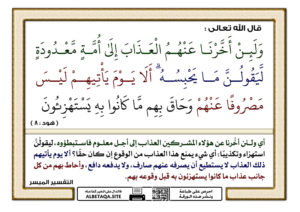 قال الله تعالى :
وَلَئِنْ أَخَّرْنَا عَنْهُمُ الْعَذَابَ إِلَىٰ أُمَّةٍ مَّعْدُودَةٍ
لَّيَقُولُنَّ مَا يَحْبِسُهُ ۗ أَلَا يَوْمَ يَأْتِيهِمْ لَيْسَ
مَصْرُوفًا عَنْهُمْ وَحَاقَ بِهِم مَّا كَانُوا بِهِ يَسْتَهْزِئُونَ
( هود : ٨ )
أي ولئن أخرنا عن هؤلاء المشركين العذاب إلى أجل معلوم فاستبطؤوه ، ليقولُنَّ
استهزاء وتكذيبًا: أي شيء يمنع هذا العذاب من الوقوع إن كان حقًا؟ ألا يوم يأتيهم
ذلك العذاب لا يستطيع أن يصرفه عنهم صارف، ولا يدفعه دافع، وأحاط بهم من كل
جانب عذاب ما كانوا يستهزئون به قبل وقوعه بهم.
التفسير الميسر
ALBETAQA.SITE